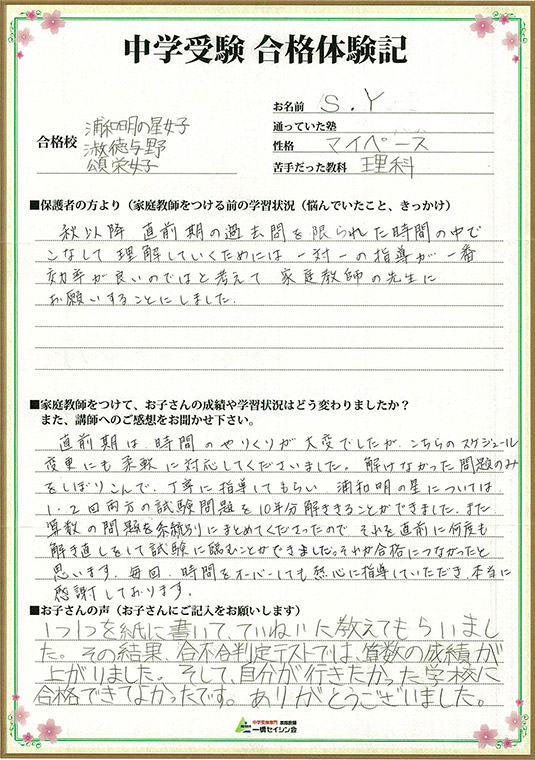 中学受験 合格体験記
合格校
浦和明の星女子
淑徳与野
頌栄女子
お名前 S.Y
通っていた塾
性格 マイペース
苦手だった教科 理科
■保護者の方より（家庭教師をつける前の学習状況（悩んでいたこと、きっかけ）
秋以降 直前期の過去問を限られた時間の中で
こなして理解していくためには 一対一の指導が一番
効率が良いのではと考えて 家庭教師の先生に
お願いすることにしました.
■家庭教師をつけて、お子さんの成績や学習状況はどう変わりましたか？
また、講師へのご感想をお聞かせ下さい。
直前期は、時間のやりくりが大変でしたが、こちらのスケジュール
変更にも柔軟に対応してくださいました。 解けなかった問題のみ
をしぼりこんで、丁寧に指導してもらい 浦和明の星については
1・2回両方の試験問題を10年分解ききることができました. また
算数の問題を系統別にまとめてくださったので それを直前に何度も
解き直しをして試験に臨むことができました。それが合格につながったと
思います. 毎回、時間をオーバーしても熱心に指導していただき、本当に
感謝しております.
■お子さんの声（お子さんにご記入をお願いします）
1つ1つを紙に書いて、ていねいに教えてもらいまし
た。その結果、合不合判定テストでは、算数の成績が
上がりました。そして、自分が行きたかった学校に
合格できてよかったです。ありがとうございました。
中学受験専門 家庭教師
一橋セイシン会